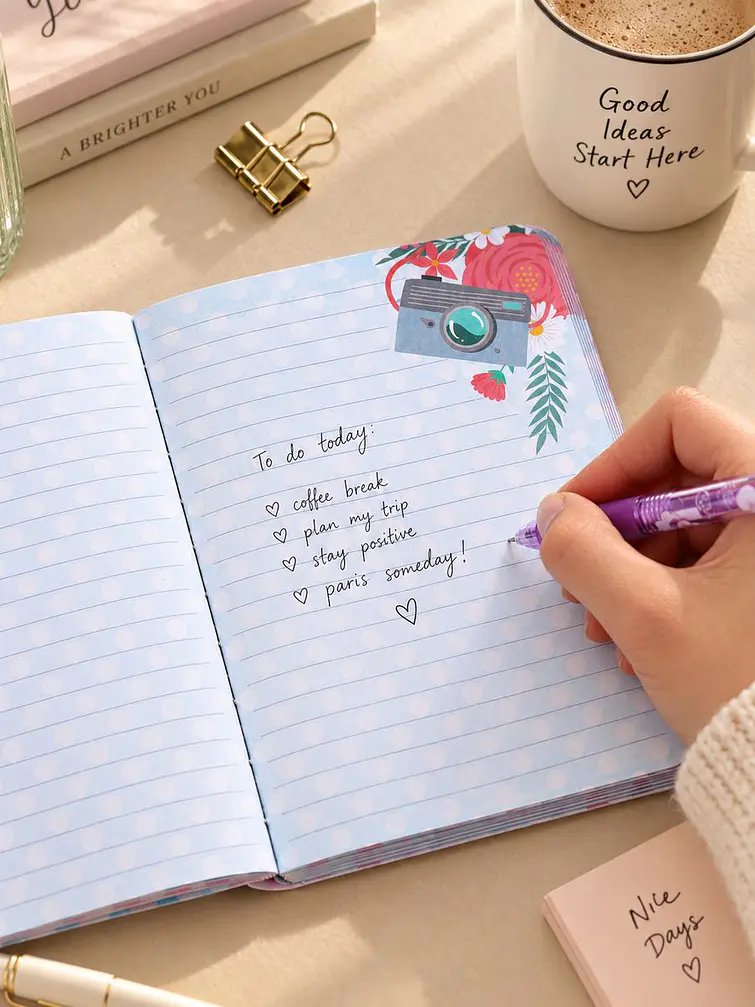 A BRIGHTER YOU
Good
Ideas
Start Here
♡
To do today:
♡ coffee break
♡ plan my trip
♡ stay positive
♡ paris someday!
♡
Nice
Days
♡